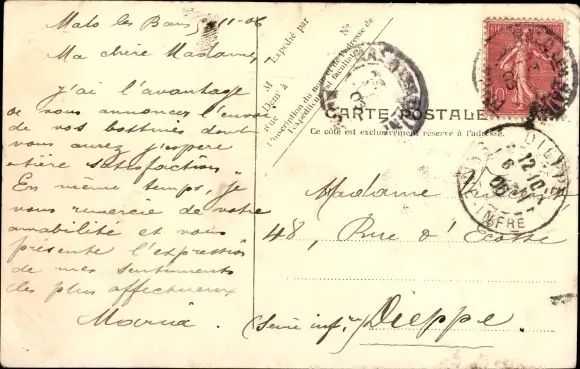 Malo les Bains 5-11-06
Ma chère Madame,
J'ai l'avantage
de vous annoncer l'envoi
de vos bottines dont
vous aurez j'espère
entière satisfaction
En même temps, je
vous remercie de votre
amabilité et vous
présente l'expression
de mes sentiments
les plus affectueux
Maria.
Expédié par
M
Demt à
rue
No
L'inscription du nom et de l'adresse de
l'expéditeur est facultative
CARTE POSTALE
Ce côté est exclusivement réservé à l'adresse.
Madame
48, Rue d'Ecosse
(Seine infre) Dieppe.
10
DIEPPE
12
6
06
INFRE